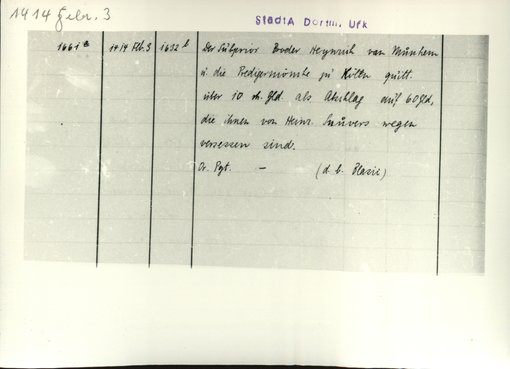 1414 Febr. 3
StadtA Dortm. Urk
1661 a 1414 Febr. 3 1632 b Der Subprior Broder Heynrich van Munhem
u. die Predigermönche zu Köln quitt.
über 10 rh. Gld. als Abschlag auf 60 Gld,
die ihnen von Heinr. Snůvers wegen
versessen sind.
Or. Pgt. — (d. b. Blasii)